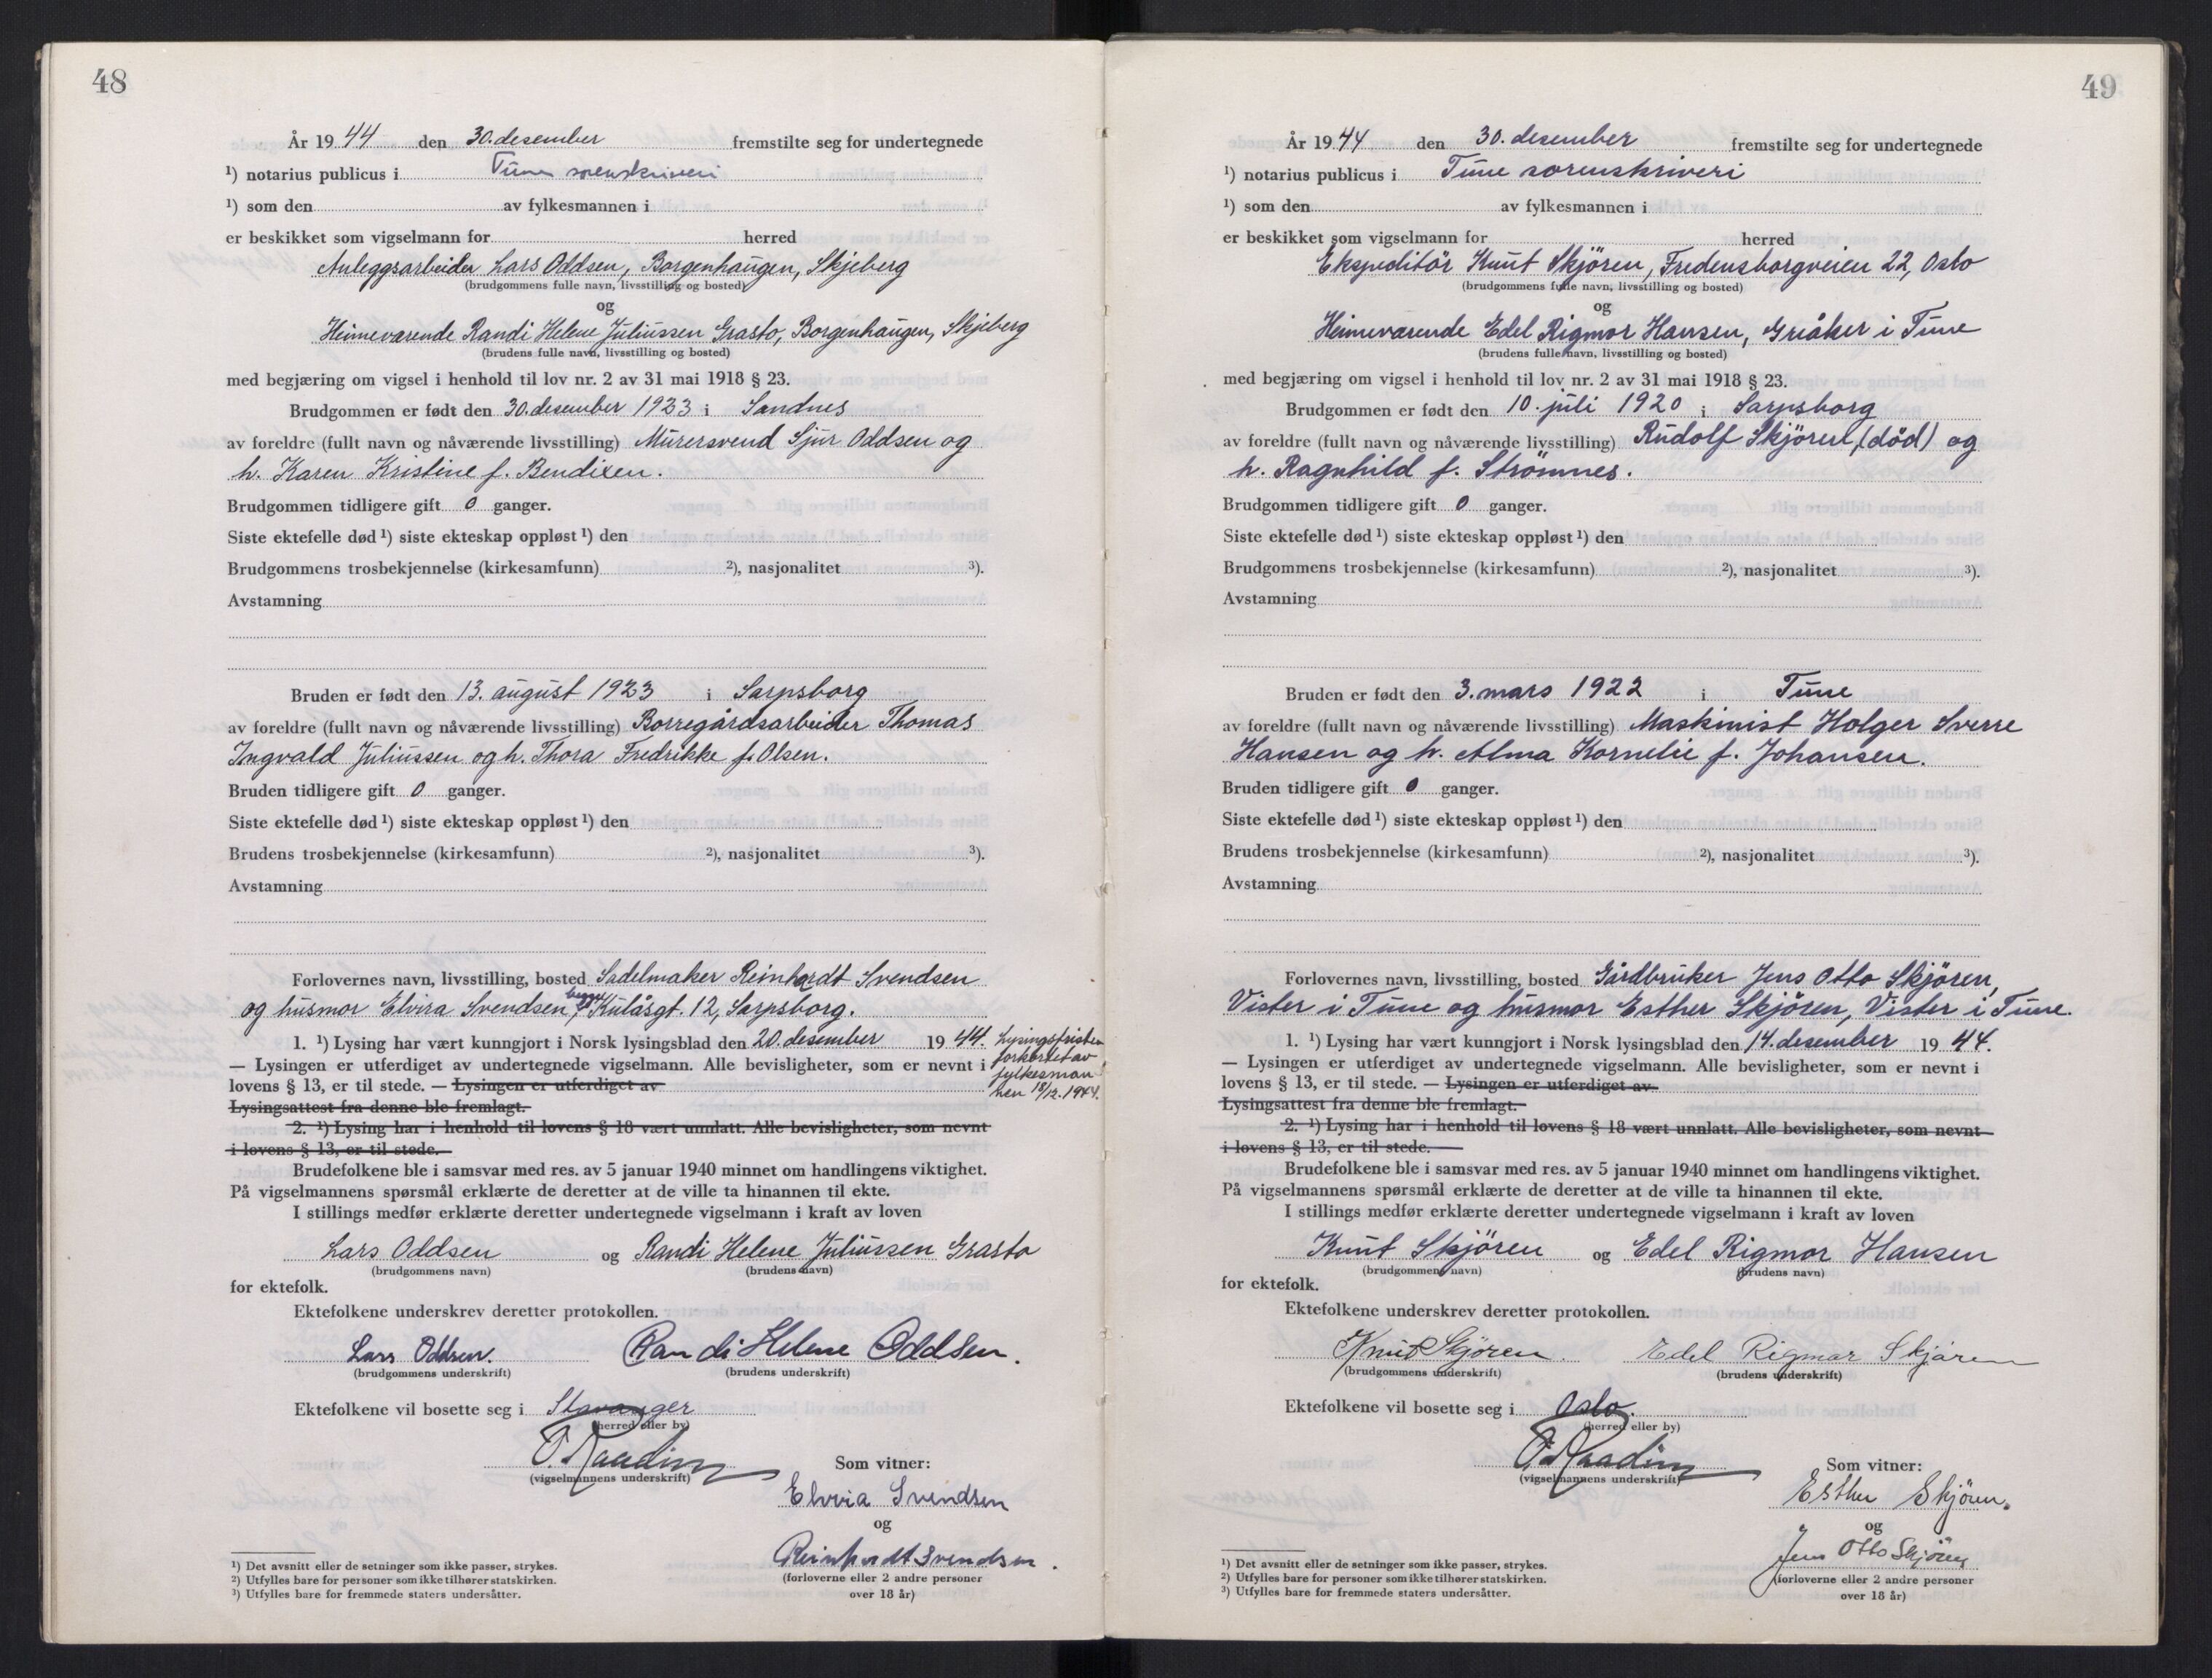 48
År 1944 den 30. desember fremstilte seg for undertegnede
¹) notarius publicus i Tune sorenskriveri
¹) som den av fylkesmannen i
er beskikket som vigselmann for herred
Anleggsarbeider Lars Oddsen, Borgenhaugen, Skjeberg
(brudgommens fulle navn, livsstilling og bosted)
og
Heimeværende Randi Helene Juliussen Grasto, Borgenhaugen, Skjeberg
(brudens fulle navn, livsstilling og bosted)
med begjæring om vigsel i henhold til lov nr. 2 av 31 mai 1918 § 23.
Brudgommen er født den 30. desember 1923 i Sandnes
av foreldre (fullt navn og nåværende livsstilling) Murersvend Sjur Oddsen og
h. Karen Kristine f. Bendixen.
Brudgommen tidligere gift 0 ganger.
Siste ektefelle død ¹) siste ekteskap oppløst ¹) den
Brudgommens trosbekjennelse (kirkesamfunn) ²), nasjonalitet ³).
Avstamning
Bruden er født den 13. august 1923 i Sarpsborg
av foreldre (fullt navn og nåværende livsstilling) Borregårdsarbeider Thomas
Ingvald Juliussen og h. Thora Fredrikke f. Olsen.
Bruden tidligere gift 0 ganger.
Siste ektefelle død ¹) siste ekteskap oppløst ¹) den
Brudens trosbekjennelse (kirkesamfunn) ²), nasjonalitet ³).
Avstamning
Forlovernes navn, livsstilling, bosted Sadelmaker Reinhardt Svendsen
og husmor Elvira Svendsen, begge Kulåsgt. 12, Sarpsborg.
1. ¹) Lysing har vært kunngjort i Norsk lysingsblad den 20. desember 1944. Lysingsfristen
forkortet av
— Lysingen er utferdiget av undertegnede vigselmann. Alle bevisligheter, som er nevnt i
fylkesman
lovens § 13, er til stede. — Lysingen er utferdiget av
nen 18/12. 1944.
Lysingsattest fra denne ble fremlagt.
2. ¹) Lysing har i henhold til lovens § 18 vært unnlatt. Alle bevisligheter, som nevnt
i lovens § 13, er til stede.
Brudefolkene ble i samsvar med res. av 5 januar 1940 minnet om handlingens viktighet.
På vigselmannens spørsmål erklærte de deretter at de ville ta hinannen til ekte.
I stillings medfør erklærte deretter undertegnede vigselmann i kraft av loven
Lars Oddsen og Randi Helene Juliussen Grasto
(brudgommens navn) (brudens navn)
for ektefolk.
Ektefolkene underskrev deretter protokollen.
Lars Oddsen. Randi Helene Oddsen.
(brudgommens underskrift) (brudens underskrift)
Ektefolkene vil bosette seg i Stavanger
(herred eller by)
(vigselmannens underskrift)
Som vitner:
Elvira Svendsen
og
Reinhardt Svendsen.
(forloverne eller 2 andre personer
over 18 år)
¹) Det avsnitt eller de setninger som ikke passer, strykes.
²) Utfylles bare for personer som ikke tilhører statskirken.
³) Utfylles bare for fremmede staters undersåtter.
49
År 1944 den 30. desember fremstilte seg for undertegnede
¹) notarius publicus i Tune sorenskriveri
¹) som den av fylkesmannen i
er beskikket som vigselmann for herred
Ekspeditör Knut Skjören, Fredensborgveien 22, Oslo
(brudgommens fulle navn, livsstilling og bosted)
og
Heimeværende Edel Rigmor Hansen, Greåker i Tune
(brudens fulle navn, livsstilling og bosted)
med begjæring om vigsel i henhold til lov nr. 2 av 31 mai 1918 § 23.
Brudgommen er født den 10. juli 1920 i Sarpsborg
av foreldre (fullt navn og nåværende livsstilling) Rudolf Skjören (död) og
h. Ragnhild f. Strömnes.
Brudgommen tidligere gift 0 ganger.
Siste ektefelle død ¹) siste ekteskap oppløst ¹) den
Brudgommens trosbekjennelse (kirkesamfunn) ²), nasjonalitet ³).
Avstamning
Bruden er født den 3. mars 1922 i Tune
av foreldre (fullt navn og nåværende livsstilling) Maskinist Holger Sverre
Hansen og h. Alma Kornelie f. Johansen.
Bruden tidligere gift 0 ganger.
Siste ektefelle død ¹) siste ekteskap oppløst ¹) den
Brudens trosbekjennelse (kirkesamfunn) ²), nasjonalitet ³).
Avstamning
Forlovernes navn, livsstilling, bosted Gårdbruker Jens Otto Skjören,
Vister i Tune og husmor Esther Skjören, Vister i Tune.
1. ¹) Lysing har vært kunngjort i Norsk lysingsblad den 14. desember 1944.
— Lysingen er utferdiget av undertegnede vigselmann. Alle bevisligheter, som er nevnt i
lovens § 13, er til stede. — Lysingen er utferdiget av
Lysingsattest fra denne ble fremlagt.
2. ¹) Lysing har i henhold til lovens § 18 vært unnlatt. Alle bevisligheter, som nevnt
i lovens § 13, er til stede.
Brudefolkene ble i samsvar med res. av 5 januar 1940 minnet om handlingens viktighet.
På vigselmannens spørsmål erklærte de deretter at de ville ta hinannen til ekte.
I stillings medfør erklærte deretter undertegnede vigselmann i kraft av loven
Knut Skjören og Edel Rigmor Hansen
(brudgommens navn) (brudens navn)
for ektefolk.
Ektefolkene underskrev deretter protokollen.
Knut Skjören. Edel Rigmor Skjøren
(brudgommens underskrift) (brudens underskrift)
Ektefolkene vil bosette seg i Oslo.
(herred eller by)
(vigselmannens underskrift)
Som vitner:
Esther Skjören.
og
Jens Otto Skjören
(forloverne eller 2 andre personer
over 18 år)
¹) Det avsnitt eller de setninger som ikke passer, strykes.
²) Utfylles bare for personer som ikke tilhører statskirken.
³) Utfylles bare for fremmede staters undersåtter.